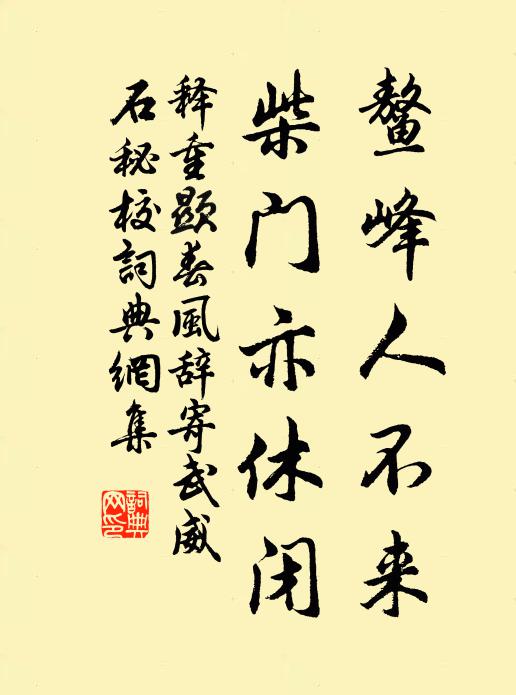 鳌峰人不来
柴门亦休闭
释重显春风辞寄武威
石秘校詞典網集
詞典網印